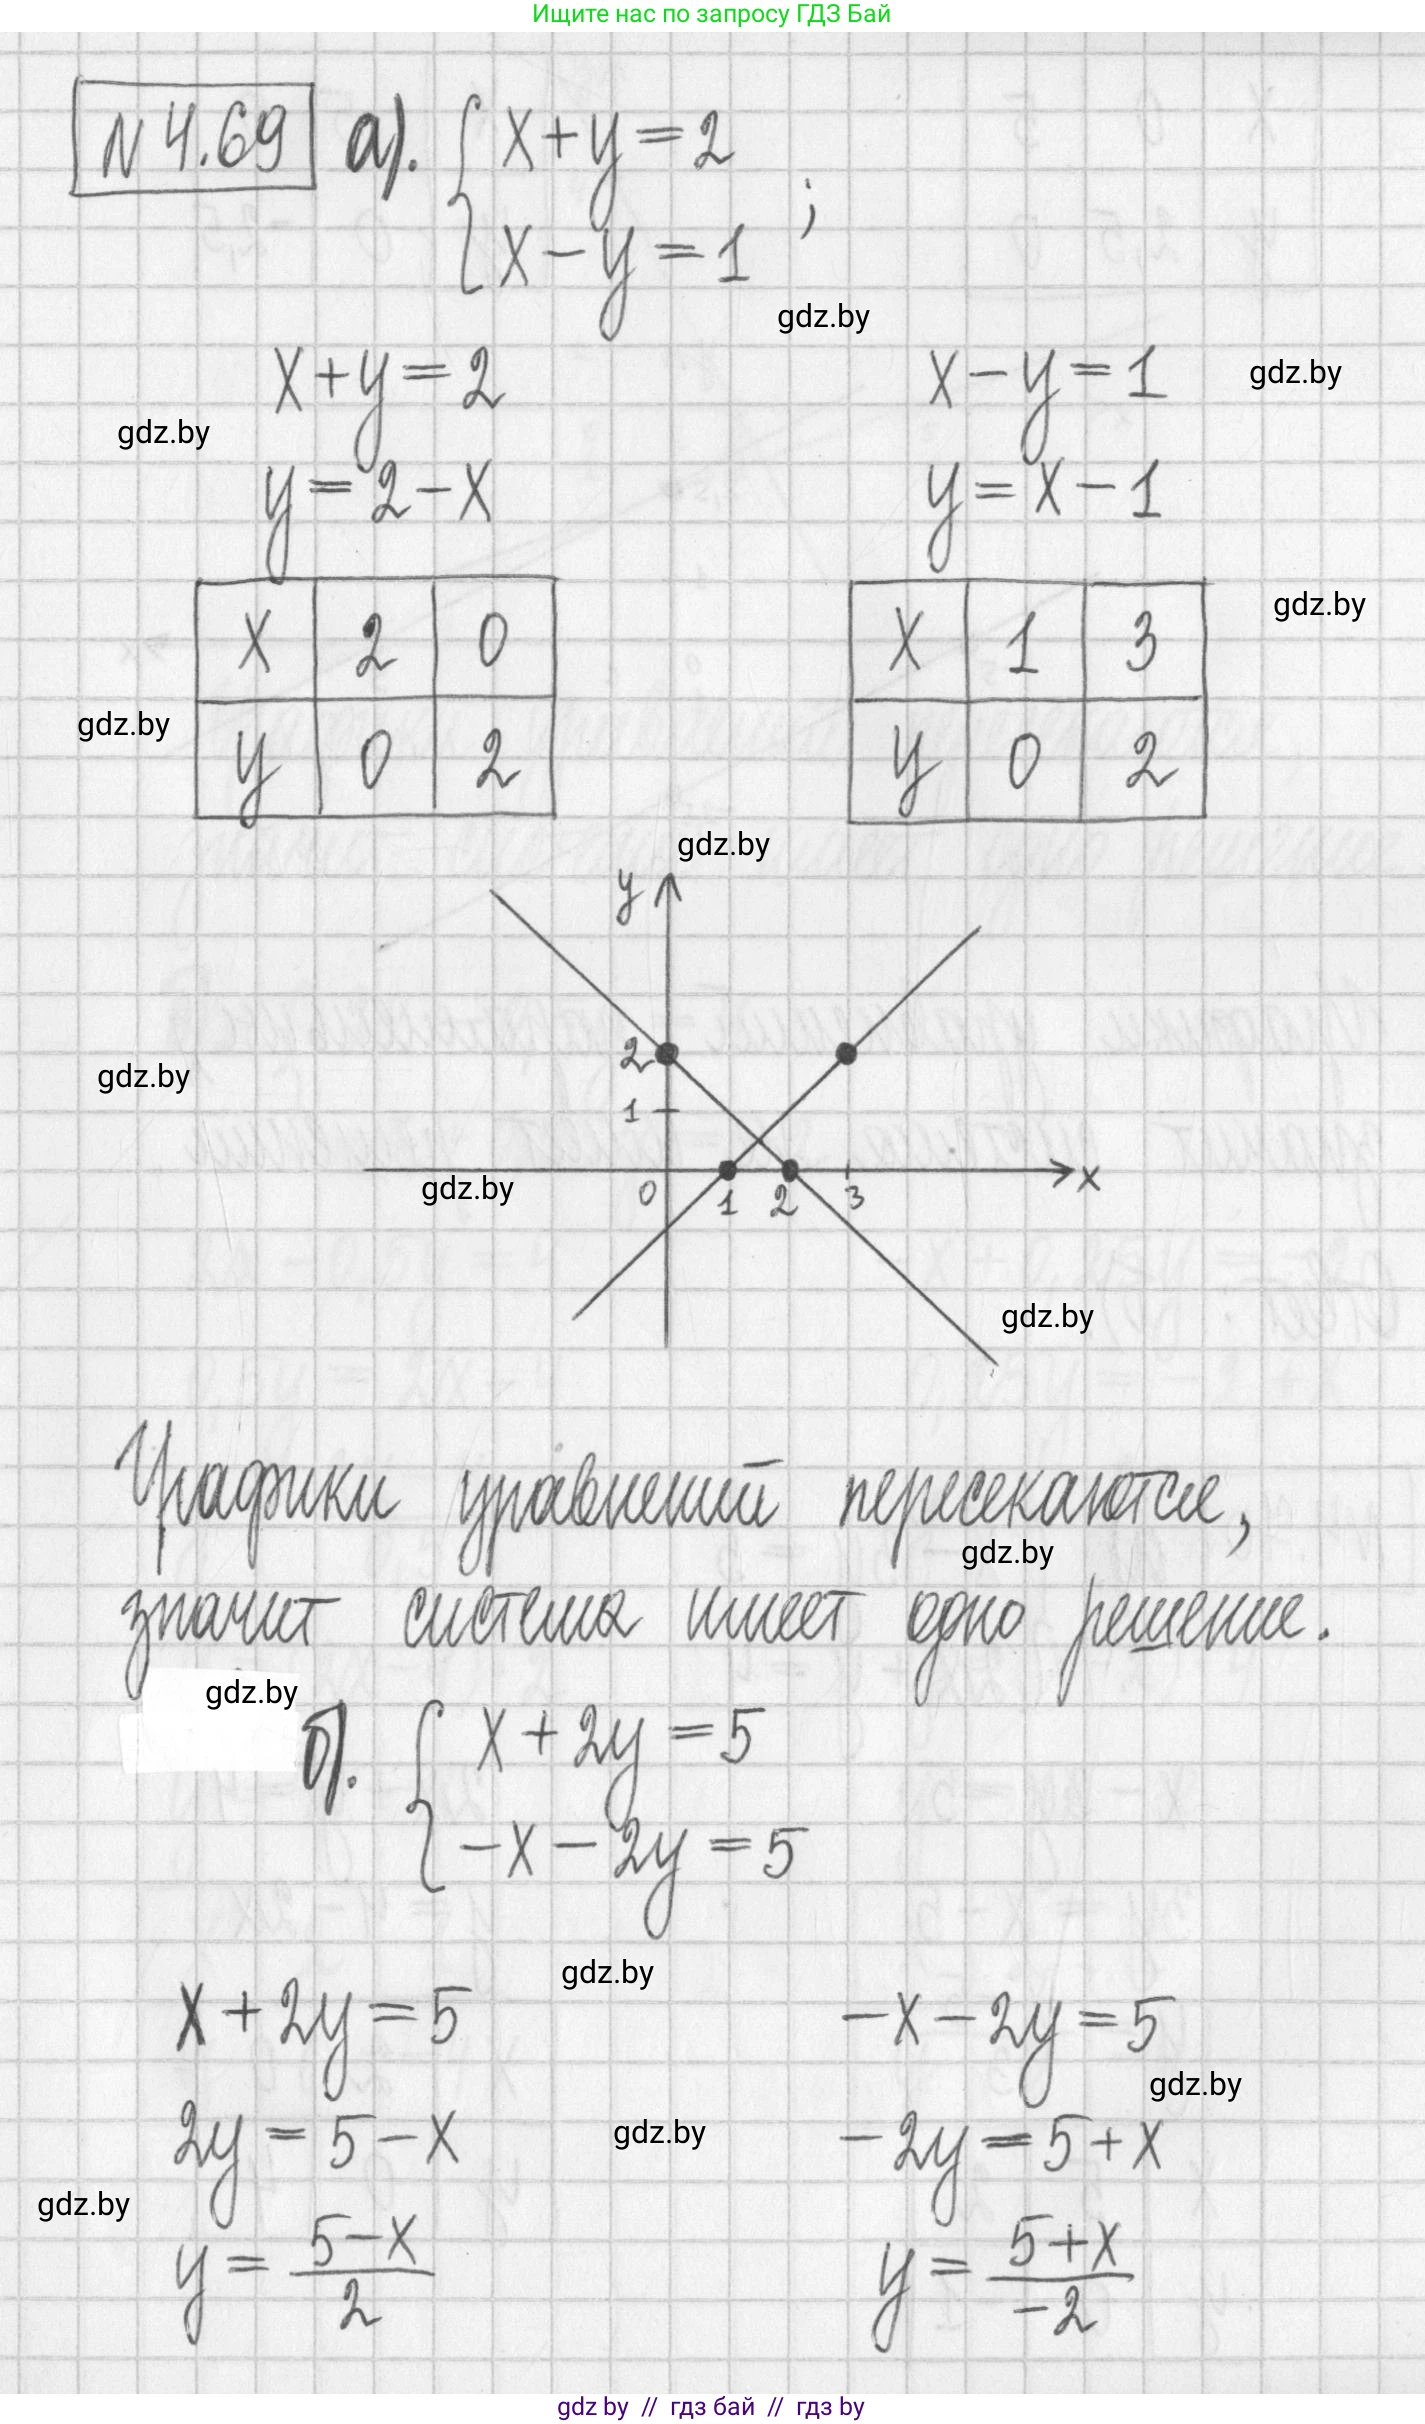 Ищите нас по запросу ГДЗ Бай
N 4.69 а). { x+y=2
x-y=1 ;
gdz.by
x+y=2 x-y=1 gdz.by
gdz.by
y=2-x y=x-1
x 2 0 x 1 3 gdz.by
gdz.by
y 0 2 y 0 2
gdz.by
y
2
gdz.by
1
gdz.by 0 1 2 3 x
gdz.by
Графики уравнений пересекаются,
gdz.by
значит система имеет одно решение.
gdz.by
б). { x+2y=5
-x-2y=5
gdz.by
x+2y=5 -x-2y=5
gdz.by
2y=5-x gdz.by -2y=5+x
gdz.by
y=\frac{5-x}{2} y=\frac{5+x}{-2}
gdz.by // гдз бай // гдз by